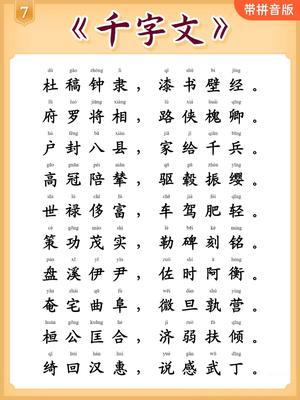 7
《千字文》
带拼音版
dù gǎo zhōng lì qī shū bì jīng
杜稿钟隶，漆书壁经。
fǔ luó jiàng xiàng lù xiá huái qīng
府罗将相，路侠槐卿。
hù fēng bā xiàn jiā jǐ qiān bīng
户封八县，家给千兵。
gāo guān péi niǎn qū gǔ zhèn yīng
高冠陪辇，驱毂振缨。
shì lù chǐ fù chē jià féi qīng
世禄侈富，车驾肥轻。
cè gōng mào shí lè bēi kè míng
策功茂实，勒碑刻铭。
pán xī yī yǐn zuǒ shí ē héng
盘溪伊尹，佐时阿衡。
yǎn zhái qū fù wēi dàn shú yíng
奄宅曲阜，微旦孰营。
huán gōng kuāng hé jì ruò fú qīng
桓公匡合，济弱扶倾。
qǐ huí hàn huì yuè gǎn wǔ dīng
绮回汉惠，说感武丁。